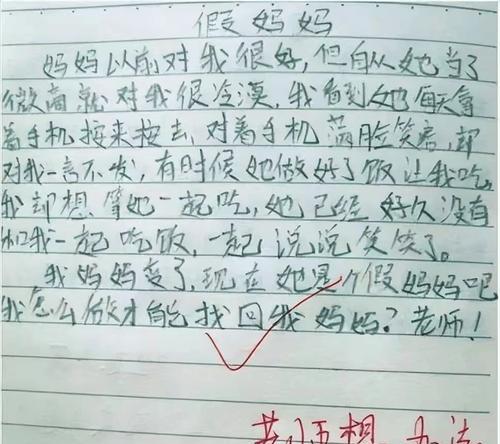 假妈妈
妈妈以前对我很好，但自从她当了
微商就对我很冷漠，我看到她每天拿
着手机按来按去，对着手机满脸笑容，却
对我一言不发，有时候她做好了饭让我吃，
我却想等她一起吃，她已经好久没有
和我一起吃饭，一起说说笑笑了。
我妈妈变了，现在她是个假妈妈吧
我怎么做才能找回我妈妈？老师！
想 办法